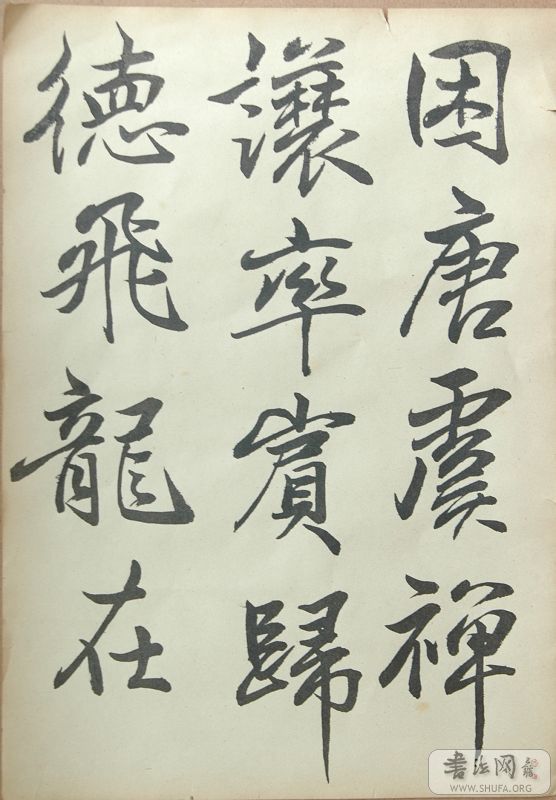 困唐虞禅
讓率賓歸
德飛龍在
书法网
WWW.SHUFA.ORG